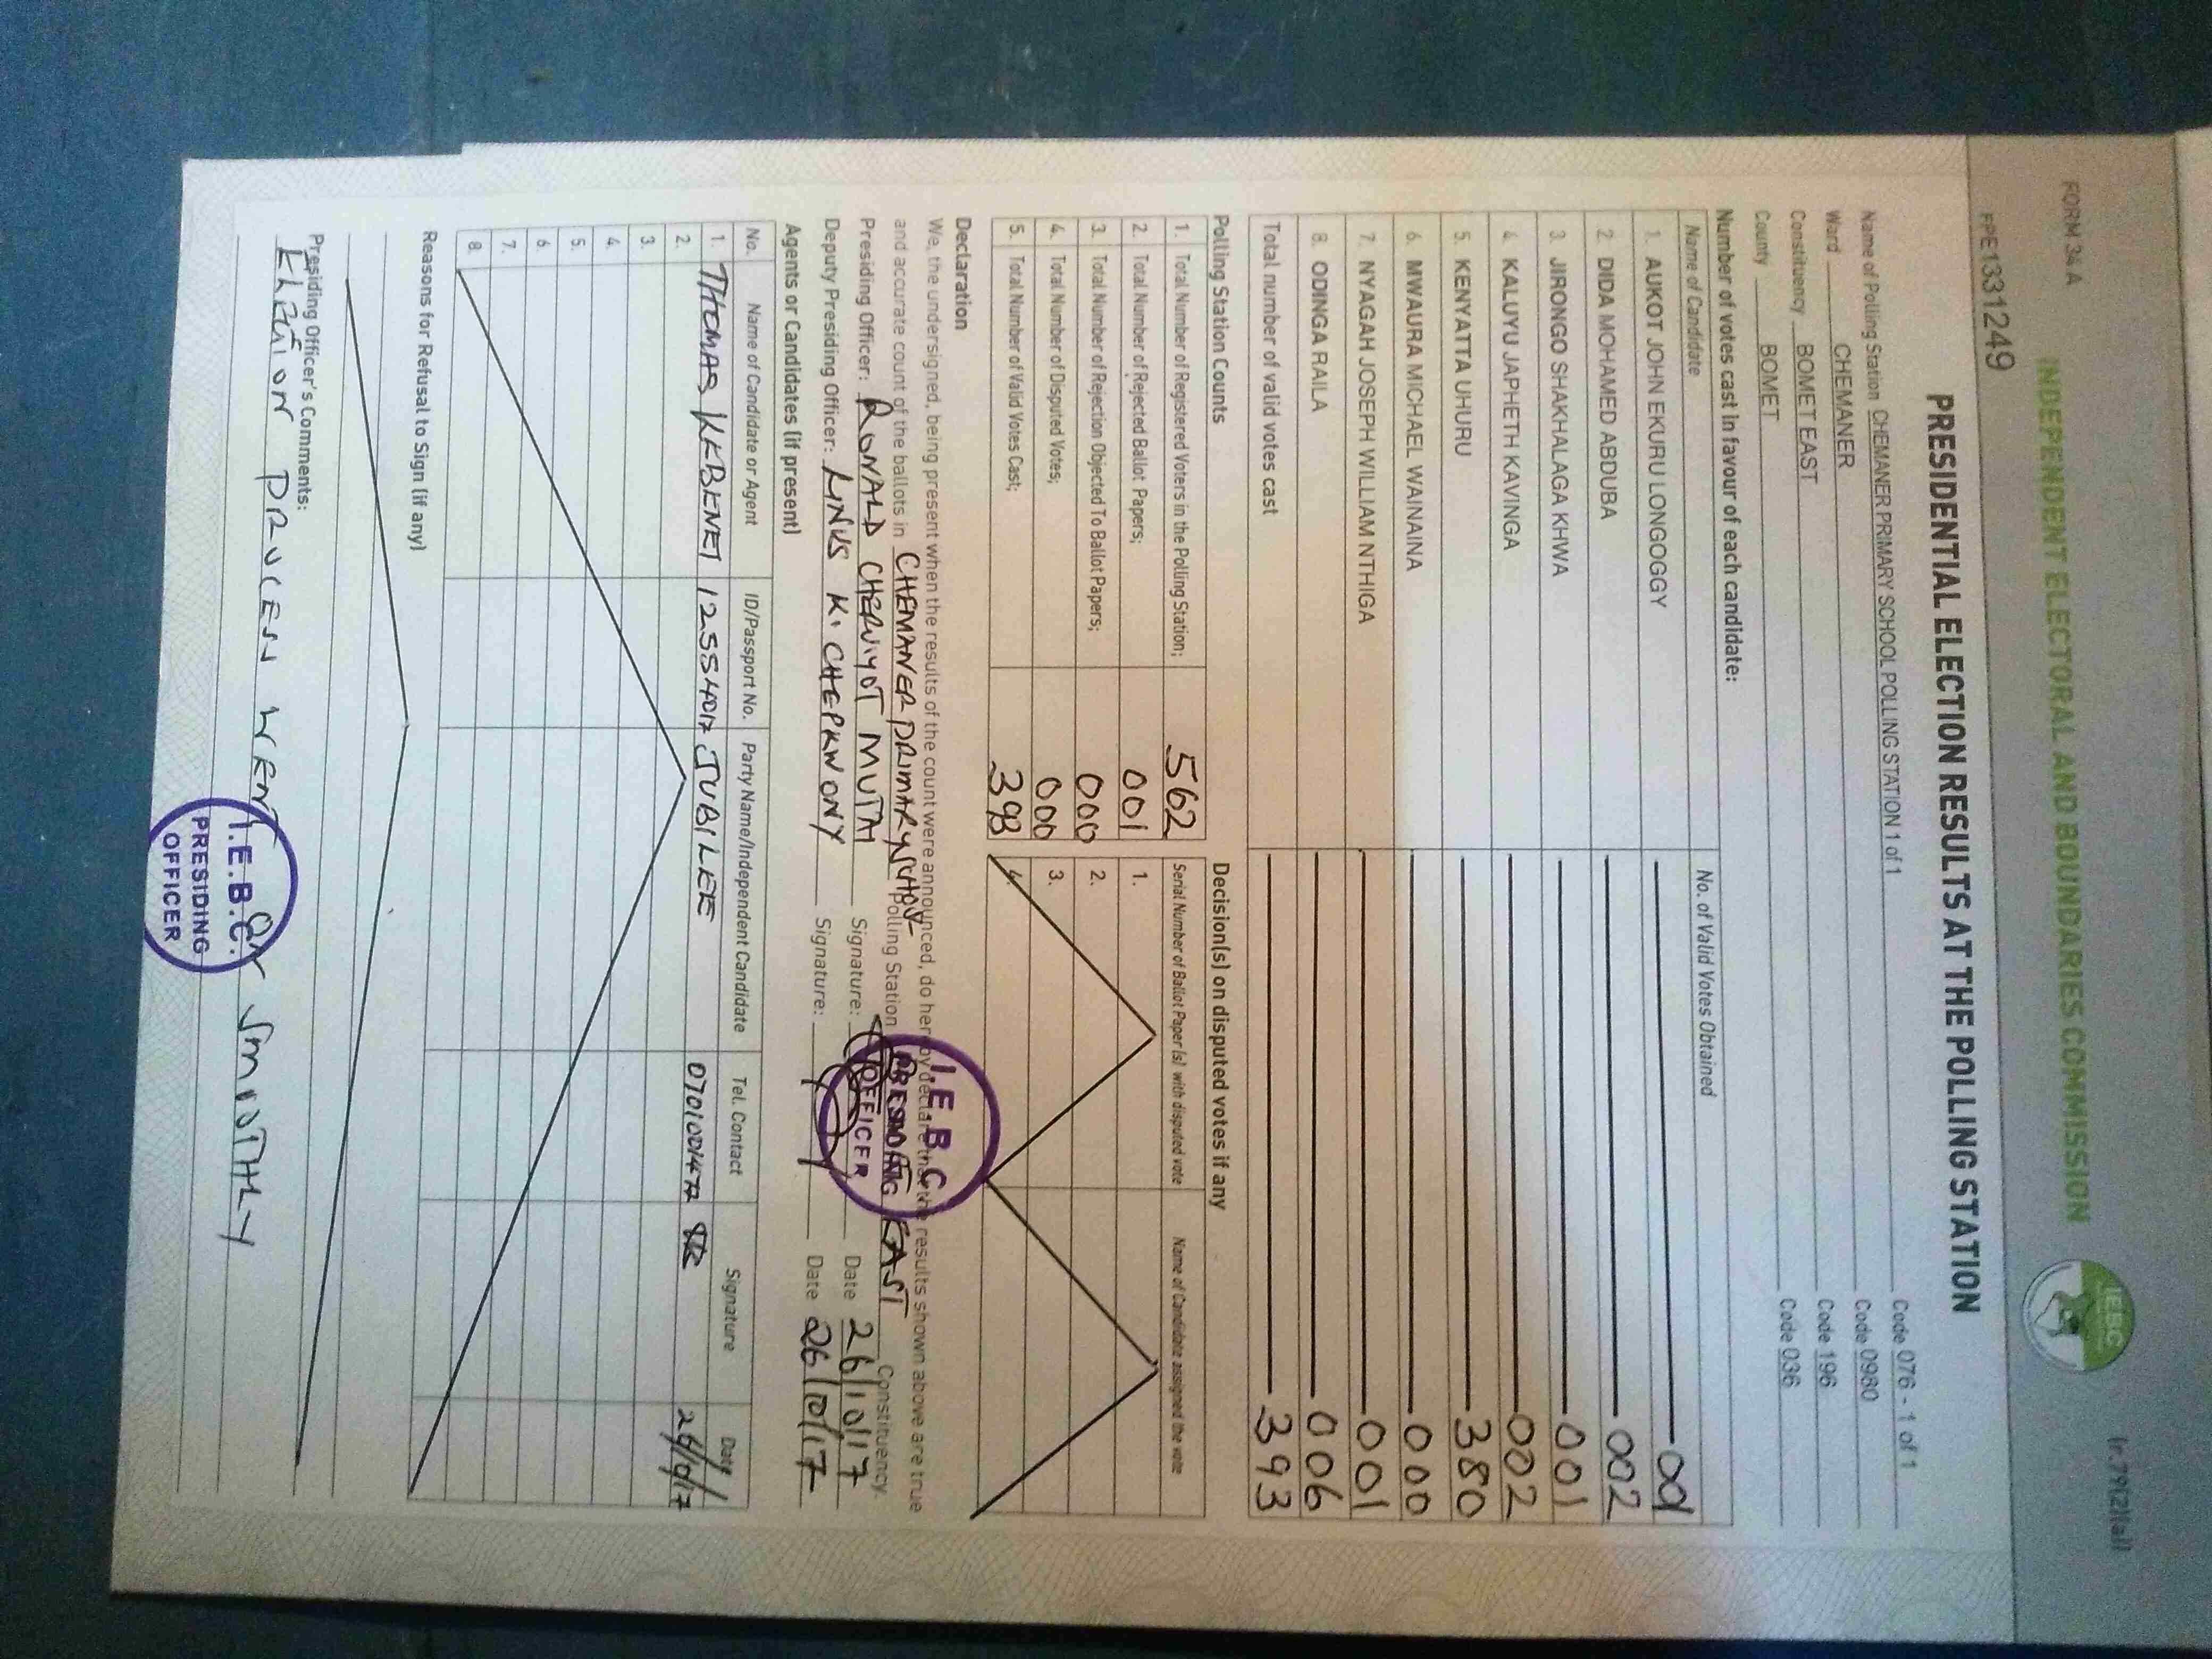 FORM 34 A
INDEPENDENT ELECTORAL AND BOUNDARIES COMMISSION
IEBC
(r.79(2)(a))
FPE1331249
PRESIDENTIAL ELECTION RESULTS AT THE POLLING STATION
Name of Polling Station CHEMANER PRIMARY SCHOOL POLLING STATION 1 of 1 Code 076 - 1 of 1
Ward CHEMANER Code 0980
Constituency BOMET EAST Code 196
County BOMET Code 036
Number of votes cast in favour of each candidate:
Name of Candidate No. of Valid Votes Obtained
1. AUKOT JOHN EKURU LONGOGGY 001
2. DIDA MOHAMED ABDUBA 002
3. JIRONGO SHAKHALAGA KHWA 001
4. KALUYU JAPHETH KAVINGA 002
5. KENYATTA UHURU 380
6. MWAURA MICHAEL WAINAINA 000
7. NYAGAH JOSEPH WILLIAM NTHIGA 001
8. ODINGA RAILA 006
Total number of valid votes cast 393
Polling Station Counts
1. Total Number of Registered Voters in the Polling Station; 562
2. Total Number of Rejected Ballot Papers; 001
3. Total Number of Rejection Objected To Ballot Papers; 000
4. Total Number of Disputed Votes; 000
5. Total Number of Valid Votes Cast; 393
Decision(s) on disputed votes if any
Serial Number of Ballot Paper (s) with disputed vote Name of Candidate assigned the vote
1.
2.
3.
4.
Declaration
We, the undersigned, being present when the results of the count were announced, do hereby declare that the results shown above are true
and accurate count of the ballots in CHEMANER PRIMARY Polling Station EAST Constituency.
Presiding Officer: RONALD CHERUIYOT MUTAI Signature: Date 26/10/17
Deputy Presiding Officer: LINUS K. CHEPKWONY Signature: Date 26/10/17
I.E.B.C
PRESIDING
OFFICER
Agents or Candidates (if present)
No. Name of Candidate or Agent ID/Passport No. Party Name/Independent Candidate Tel. Contact Signature Date
1. THOMAS KEBENEI 12554017 JUBILEE 0701001472 26/10/17
2.
3.
4.
5.
6.
7.
8.
Reasons for Refusal to Sign (if any)
Presiding Officer's Comments:
PROCESS WENT ON SMOOTHLY
I.E.B.C.
PRESIDING
OFFICER